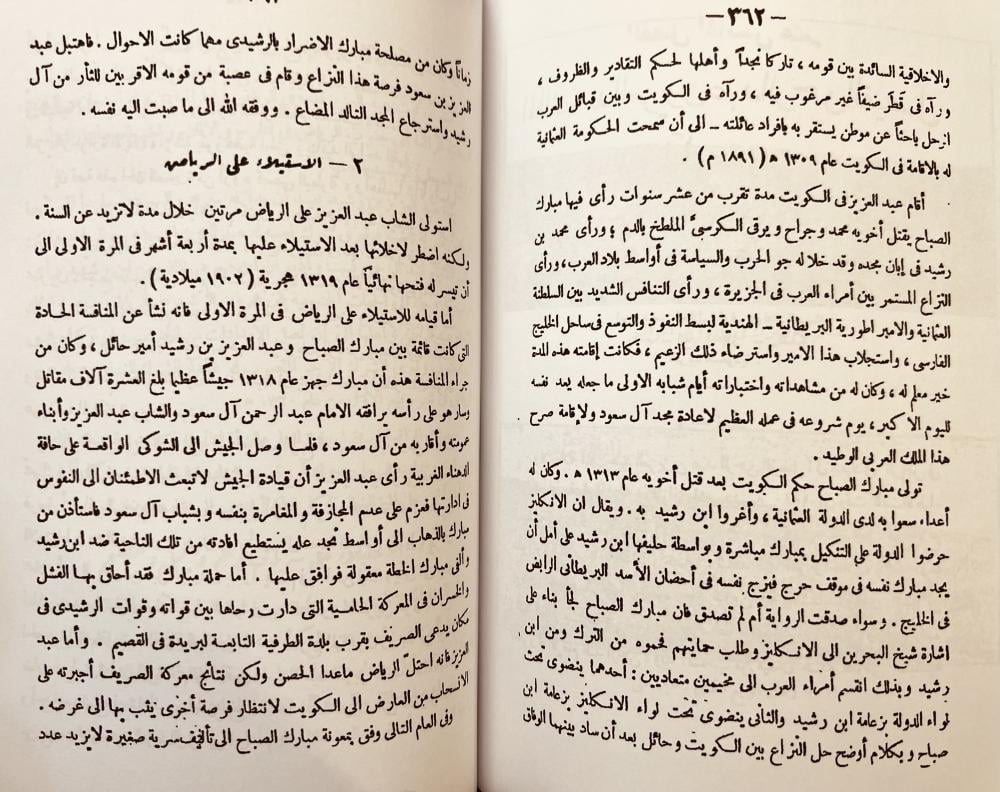 — ٣٦٢ —
والاخلاقية السائدة بين قومه ، تاركا نجداً وأهلها لحكم التقادير والظروف ،
ورآه فى قَطَر ضيفاً غير مرغوب فيه ، ورآه فى الكويت وبين قبائل العرب
الرحل باحثاً عن موطن يستقر به بافراد عائلته — الى أن سمحت الحكومة العثمانية
له بالاقامة فى الكويت عام ١٣٠٩ ه ( ١٨٩١ م ) .
أقام عبد العزيز فى الكويت مدة تقرب من عشر سنوات رأى فيها مبارك
الصباح يقتل أخويه محمد وجراح ويرقى الكرسىَّ الملطخ بالدم ؛ ورأى محمد بن
رشيد فى إبان مجده وقد خلا له جو الحرب والسياسة فى أواسط بلاد العرب ، ورأى
النزاع المستمر بين أمراء العرب فى الجزيرة ، ورأى التنافس الشديد بين السلطنة
العثمانية والامبراطورية البريطانية — الهندية لبسط النفوذ والتوسع فى ساحل الخليج
الفارسى ، واستجلاب هذا الامير واسترضاء ذلك الزعيم ، فكانت إقامته هذه المدة
خير معلم له ، وكان له من مشاهداته واختباراته أيام شبابه الاولى ما جعله يعد نفسه
لليوم الاكبر ، يوم شروعه فى عمله العظيم لاعادة مجد آل سعود ولاقامة صرح
هذا الملك العربى الوطيد .
تولى مبارك الصباح حكم الكويت بعد قتل أخويه عام ١٣١٣ ه . وكان له
أعداء سعوا به لدى الدولة العثمانية ، وأغروا ابن رشيد به . ويقال ان الانكليز
حرضوا الدولة على التنكيل بمبارك مباشرة وبواسطة حليفها ابن رشيد على أمل أن
يجد مبارك نفسه فى موقف حرج فيزج نفسه فى أحضان الأسد البريطانى الرابض
فى الخليج . وسواء صدقت الرواية أم لم تصدق فان مبارك الصباح لجأ بناء على
اشارة شيخ البحرين الى الانكليز وطلب حمايتهم فحموه من الترك ومن ابن
رشيد وبذلك انقسم أمراء العرب الى مخيمين متعاديين : أحدهما ينضوى تحت
لواء الدولة بزعامة ابن رشيد والثانى ينضوى تحت لواء الانكليز بزعامة ابن
صباح وبكلام أوضح حل النزاع بين الكويت وحائل بعد أن ساد بينهما الوفاق
زماناً وكان من مصلحة مبارك الاضرار بالرشيدى مهما كانت الاحوال . فاهتبل عبد
العزيز بن سعود فرصة هذا النزاع وقام فى عصبة من قومه الاقربين للثأر من آل
رشيد واسترجاع المجد التالد المضاع . ووفقه الله الى ما صبت اليه نفسه .
٢ — الاستيلاء على الرياض
استولى الشاب عبد العزيز على الرياض مرتين خلال مدة لا تزيد عن السنة .
ولكنه اضطر لاخلائها بعد الاستيلاء عليها بمدة أربعة أشهر فى المرة الاولى الى
أن تيسر له فتحها نهائياً عام ١٣١٩ هجرية ( ١٩٠٢ ميلادية ) .
أما قيامه للاستيلاء على الرياض فى المرة الاولى فانه نشأ عن المنافسة الحادة
التى كانت قائمة بين مبارك الصباح وعبد العزيز بن رشيد أمير حائل ، وكان من
جراء المنافسة هذه أن مبارك جهز عام ١٣١٨ جيشاً عظيما بلغ العشرة آلاف مقاتل
وسار هو على رأسه يرافقه الامام عبد الرحمن آل سعود والشاب عبد العزيز وأبناء
عمومته وأقاربه من آل سعود ، فلما وصل الجيش الى الشوكى الواقعة على حافة
الدهناء الغربية رأى عبد العزيز أن قيادة الجيش لا تبعث الاطمئنان الى النفوس
فى ادارتها فعزم على عدم المجازفة والمغامرة بنفسه وبشباب آل سعود فاستأذن من
مبارك بالذهاب الى أواسط نجد عله يستطيع افادته من تلك الناحية ضد ابن رشيد
وألفى مبارك الخطة معقولة فوافق عليها . أما حملة مبارك فقد أحاق بها الفشل
والخسران فى المعركة الحامية التى دارت رحاها بين قواته وقوات الرشيدى فى
مكان يدعى الصريف بقرب بلدة الطرفية التابعة لبريدة فى القصيم . وأما عبد
العزيز فانه احتلّ الرياض ماعدا الحصن ولكن نتائج معركة الصريف أجبرته على
الانسحاب من العارض الى الكويت لانتظار فرصة أخرى يثب بها الى غرضه .
وفى العام التالى وفق بمعونة مبارك الصباح الى تأليف سرية صغيرة لا يزيد عدد